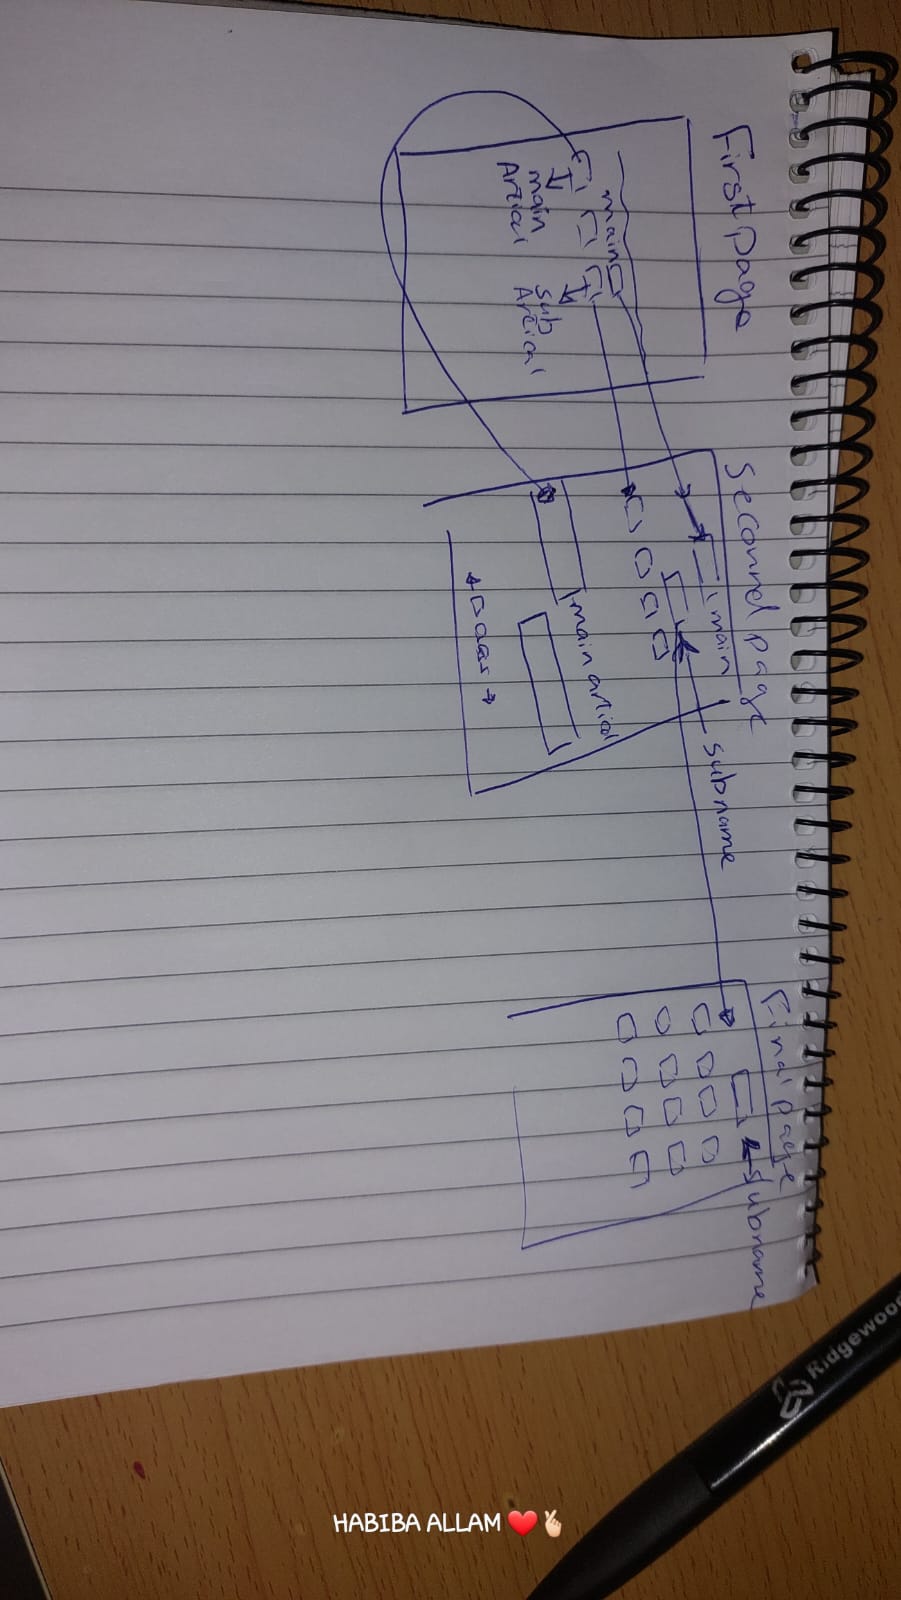 First Page
main
main
Artical
sub
Artical
seconnd page
main
subname
main artical
Final page
subname
Ridgewood
HABIBA ALLAM ❤️🫰🏻